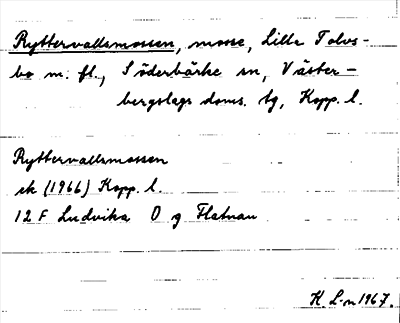 Ryttervallsmossen, mosse, Lilla Tolvs-
bo m. fl., Söderbärke sn, Väster-
bergslags doms. tg, Kopp. l.
Ryttervallsmossen
ek (1966) Kopp. l.
12 F Ludvika O g Flatnan
K. L-n 1967.